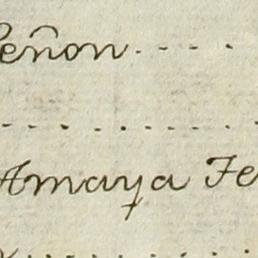 eñon
Amaya Fe